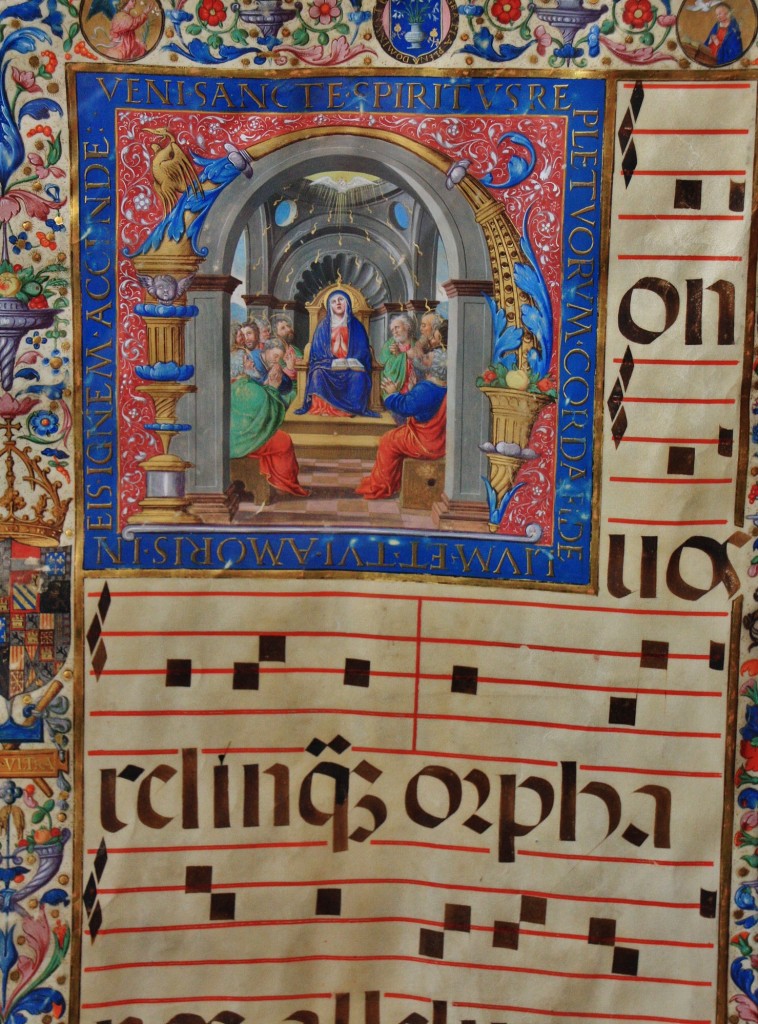 VENI·SANCTE·SPIRITVS RE
PLE TVORVM·CORDA·FIDE
LIVM·ET·TVI·AMORIS·IN
EIS IGNEM ACCENDE
N
on
uos
relinq̃s orpha
nos allelu